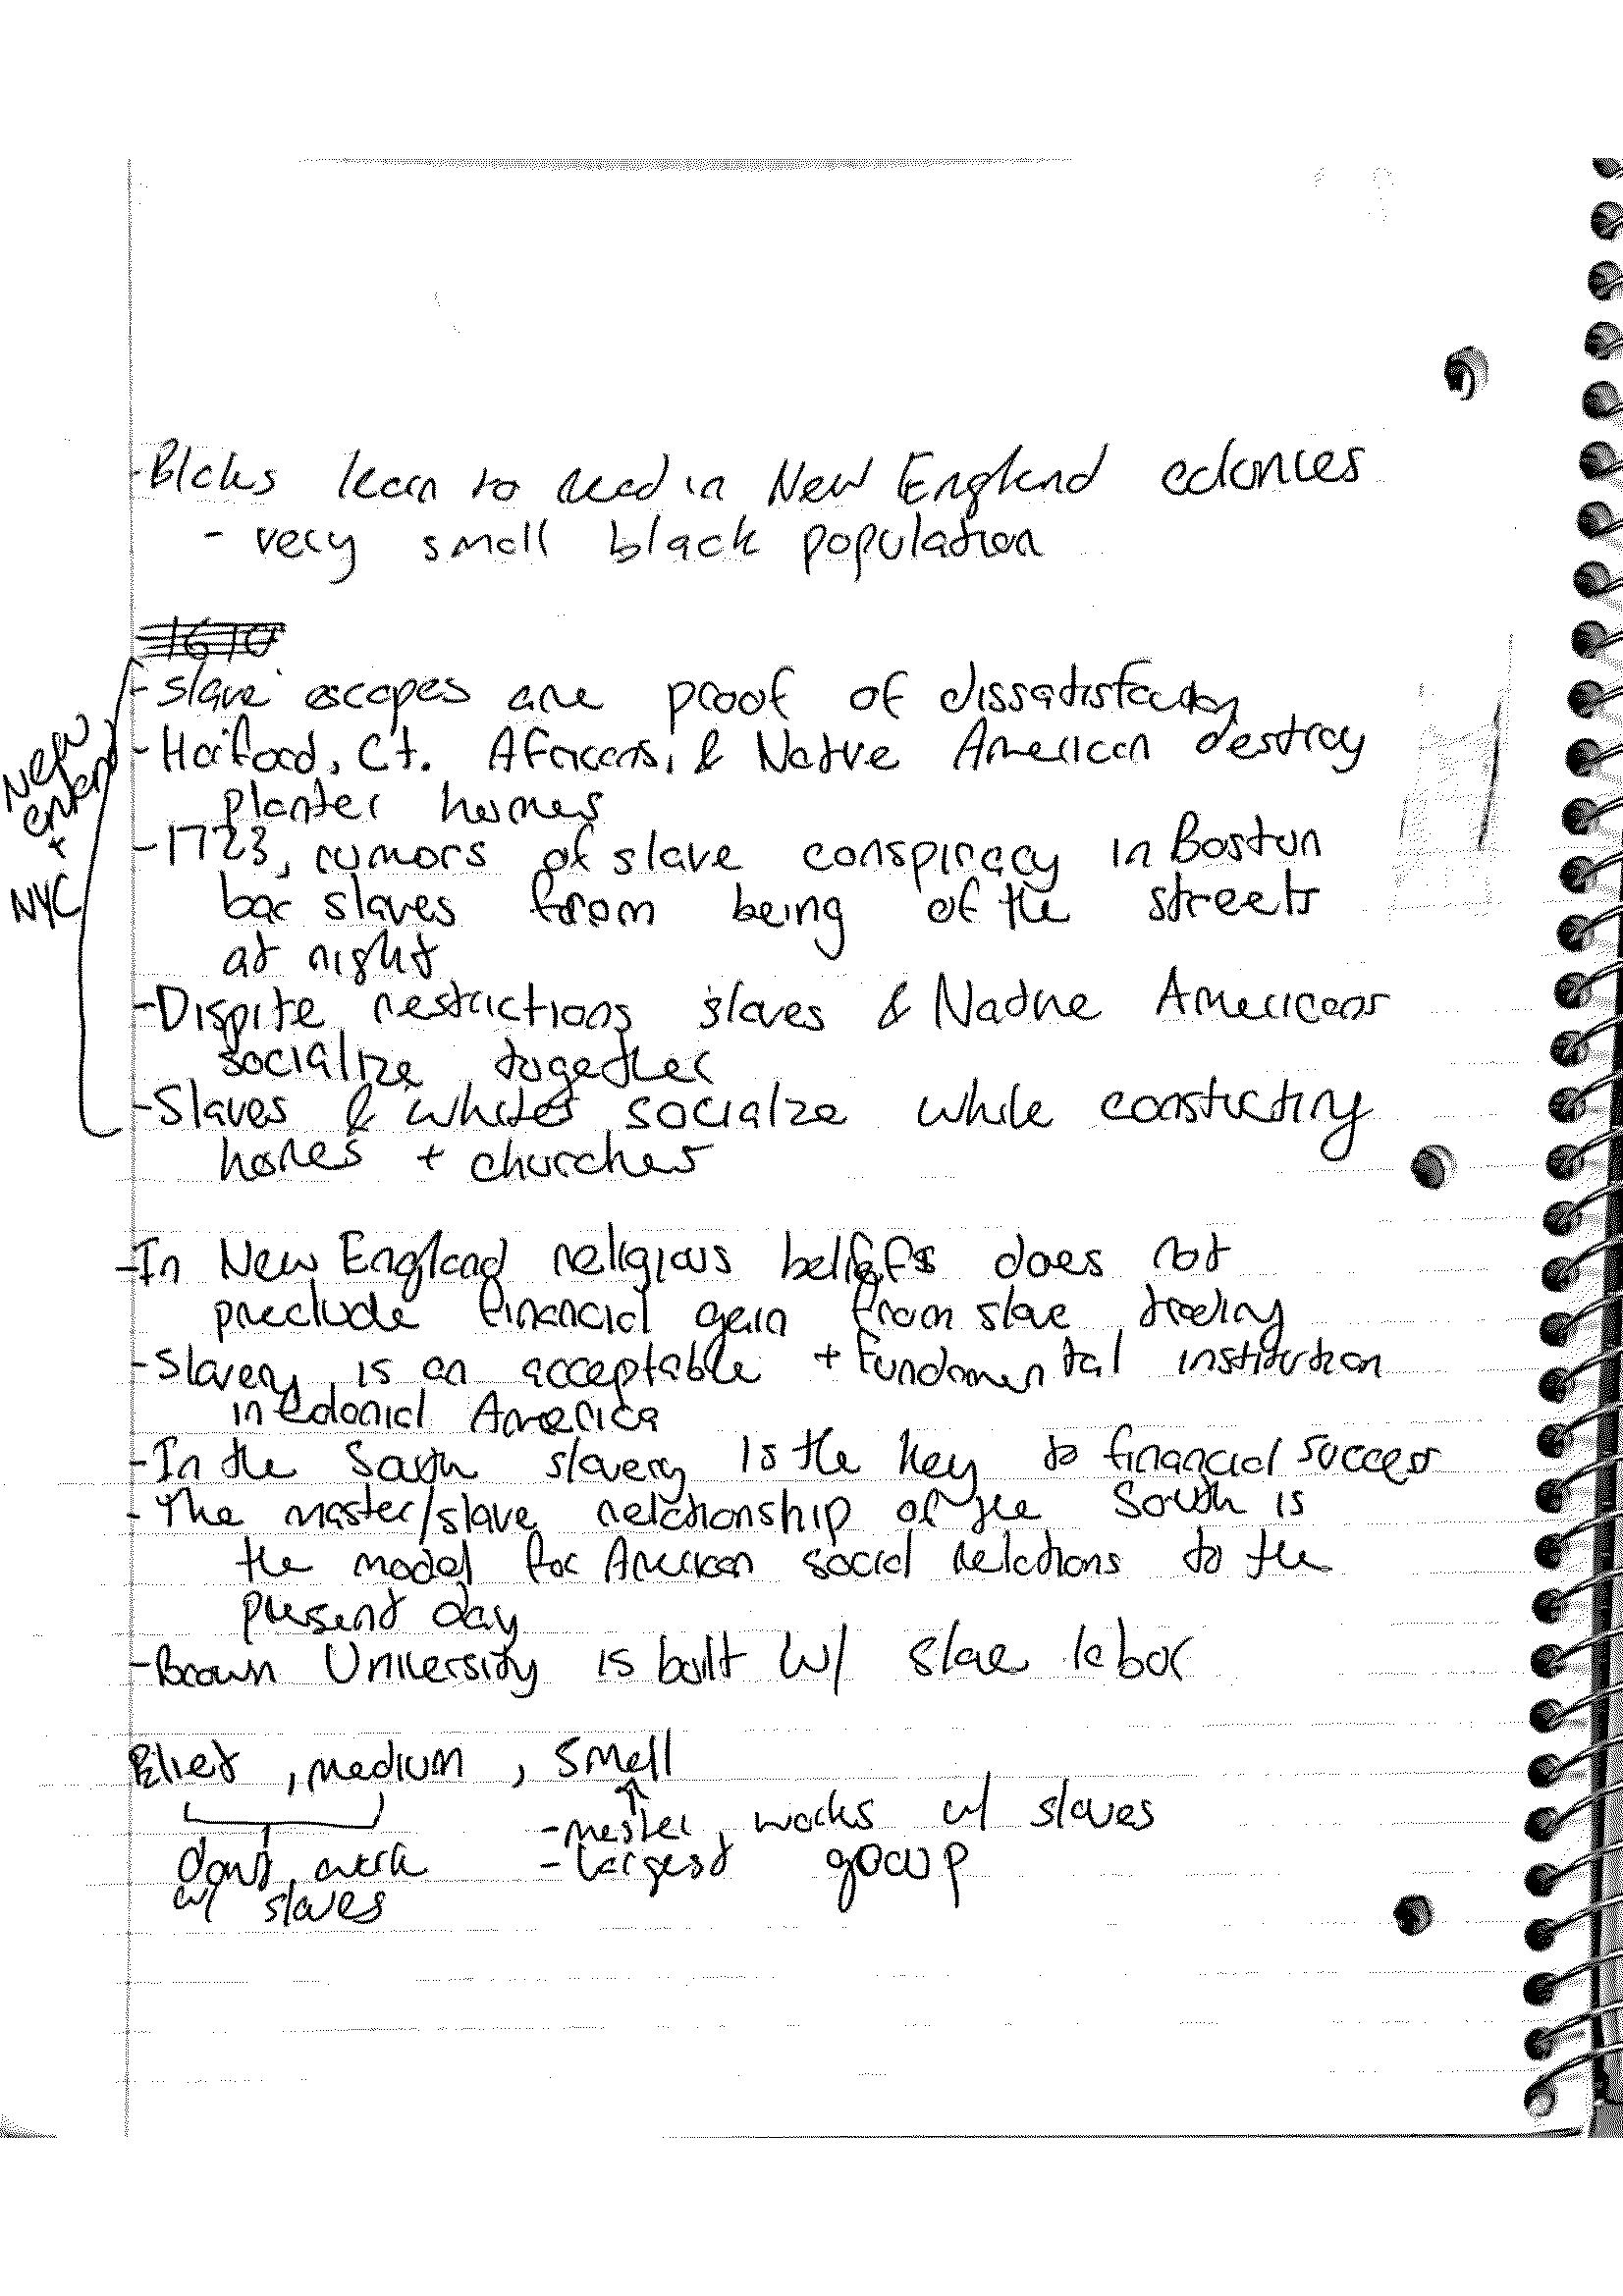 -Blcks learn to read in New England colonies
- very small black population
1670
-slave escapes are proof of dissatisfaction
-Harford, Ct. Africans, & Native American destroy
planter homes
-1723, rumors of slave conspiracy in Boston
bar slaves from being of the streets
at night
-Dispite restrictions slaves & Native Americans
socialize together
-Slaves & whites socialze while constucting
homes + churches
New
England
+
NYC
-In New England religious beliefs does not
preclude financial gain from slave trading
-Slavery is an acceptable + fundamental institution
in colonial America
-In the South slavery is the key to financial success
-The master/slave relationship of the South is
the model for American social relations to the
present day
-Brown University is built w/ slave labor
Eliet, medium, small
-master works w/ slaves
-largest group
dont work
w/ slaves